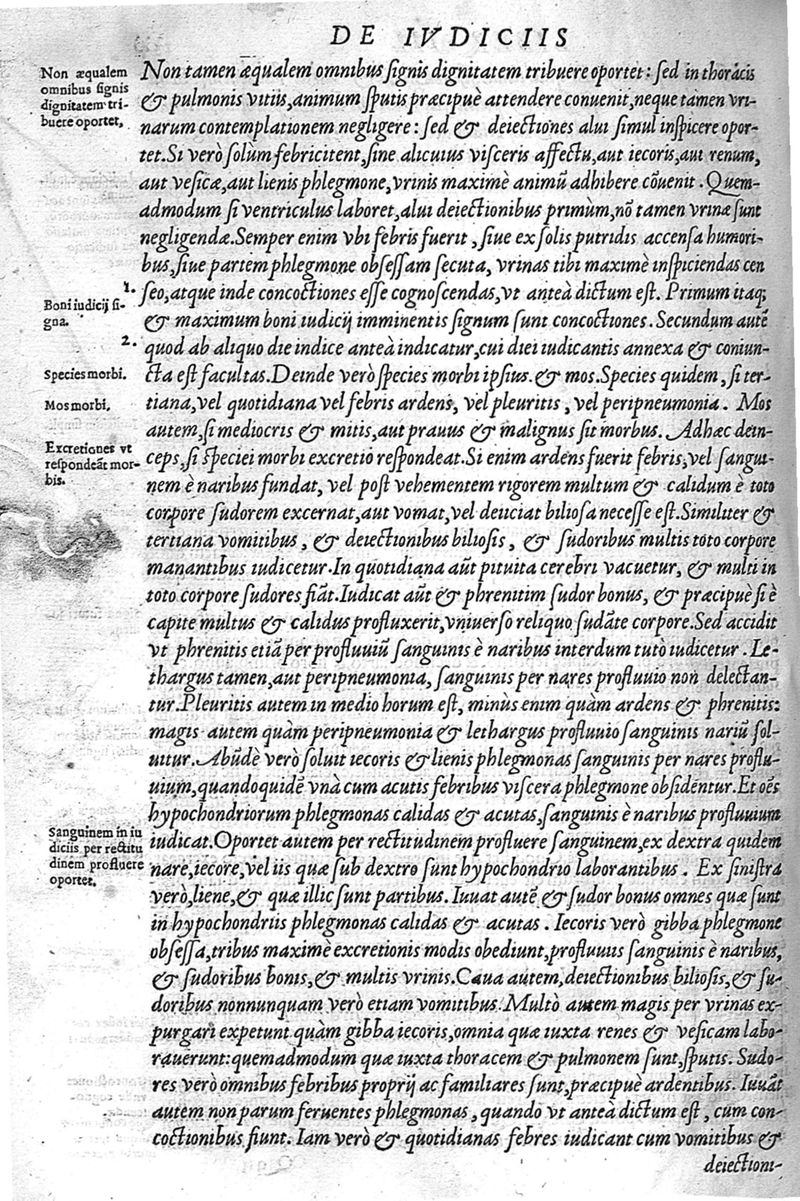 DE IVDICIIS
Non æqualem
omnibus signis
dignitatem tri-
buere oportet.
Non tamen æqualem omnibus signis dignitatem tribuere oportet: sed in thorácis
& pulmonis vitiis, animum sputis præcipuè attendere conuenit, neque tamen vri-
narum contemplationem negligere: sed & deiectiones alui simul inspicere opor-
tet. Si verò solùm febricitent, sine alicuius visceris affectu, aut iecoris, aut renum,
aut vesicæ, aut lienis phlegmone, vrinis maximè animũ adhibere cõuenit. Quem-
admodum si ventriculus laboret, alui deiectionibus primùm, nõ tamen vrinæ sunt
negligendæ. Semper enim vbi febris fuerit, siue ex solis putridis accensa humori-
bus, siue partem phlegmone obsessam secuta, vrinas tibi maximè inspiciendas cen
1.
Boni iudicij si-
gna.
seo, atque inde concoctiones esse cognoscendas, vt anteà dictum est. Primum itaq;
& maximum boni iudicij imminentis signum sunt concoctiones. Secundum autẽ
2.
quod ab aliquo die indice anteà indicatur, cui diei iudicantis annexa & coniun-
Species morbi.
cta est facultas. Deinde verò species morbi ipsius. & mos. Species quidem, si ter-
Mos morbi.
tiana, vel quotidiana vel febris ardens, vel pleuritis, vel peripneumonia. Mos
autem, si mediocris & mitis, aut prauus & malignus sit morbus. Adhæc dein-
Excretiones vt
respondeãt mor-
bis.
ceps, si speciei morbi excretio respondeat. Si enim ardens fuerit febris, vel sangui-
nem è naribus fundat, vel post vehementem rigorem multum & calidum è toto
corpore sudorem excernat, aut vomat, vel deiiciat biliosa necesse est. Similiter &
tertiana vomitibus, & deiectionibus biliosis, & sudoribus multis toto corpore
manantibus iudicetur. In quotidiana aũt pituita cerebri vacuetur, & multi in
toto corpore sudores fiãt. Iudicat aũt & phrenitim sudor bonus, & præcipuè si è
capite multus & calidus profluxerit, vniuerso reliquo sudãte corpore. Sed accidit
vt phrenitis etiã per profluuiũ sanguinis è naribus interdum tutò iudicetur. Le-
thargus tamen, aut peripneumonia, sanguinis per nares profluuio non delectan-
tur. Pleuritis autem in medio horum est, minùs enim quàm ardens & phrenitis:
magis autem quàm peripneumonia & lethargus profluuio sanguinis nariũ sol-
uitur. Abũdè verò soluit iecoris & lienis phlegmonas sanguinis per nares proflu-
uium, quandoquidẽ vnà cum acutis febribus viscera phlegmone obsidentur. Et oẽs
hypochondriorum phlegmonas calidas & acutas, sanguinis è naribus profluuium
Sanguinem in iu
diciis per rectitu
dinem profluere
oportet.
iudicat. Oportet autem per rectitudinem profluere sanguinem, ex dextra quidem
nare, iecore, vel iis quæ sub dextro sunt hypochondrio laborantibus. Ex sinistra
verò, liene, & quæ illic sunt partibus. Iuuat autẽ & sudor bonus omnes quæ sunt
in hypochondriis phlegmonas calidas & acutas. Iecoris verò gibba phlegmone
obsessa, tribus maximè excretionis modis obediunt, profluuiis sanguinis è naribus,
& sudoribus bonis, & multis vrinis. Caua autem, deiectionibus biliosis, & su-
doribus nonnunquam verò etiam vomitibus. Multò autem magis per vrinas ex-
purgari expetunt quàm gibba iecoris, omnia quæ iuxta renes & vesicam labo-
rauerunt: quemadmodum quæ iuxta thoracem & pulmonem sunt, sputis. Sudo-
res verò omnibus febribus proprij ac familiares sunt, præcipuè ardentibus. Iuuãt
autem non parum feruentes phlegmonas, quando vt anteà dictum est, cum con-
coctionibus fiunt. Iam verò & quotidianas febres iudicant cum vomitibus &
deiectioni-